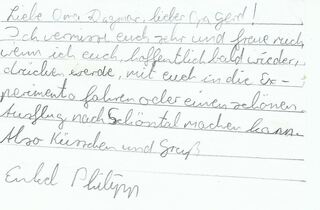 Liebe Oma Dagmar, lieber Opa Gerd!
Ich vermisse euch sehr und freue mich,
wenn ich euch, hoffentlich bald wieder
drücken werde, mit euch in die Ex-
perimenta fahren oder einen schönen
Ausflug nach Schöntal machen kann.
Also Küsschen und Gruß
Enkel Philipp